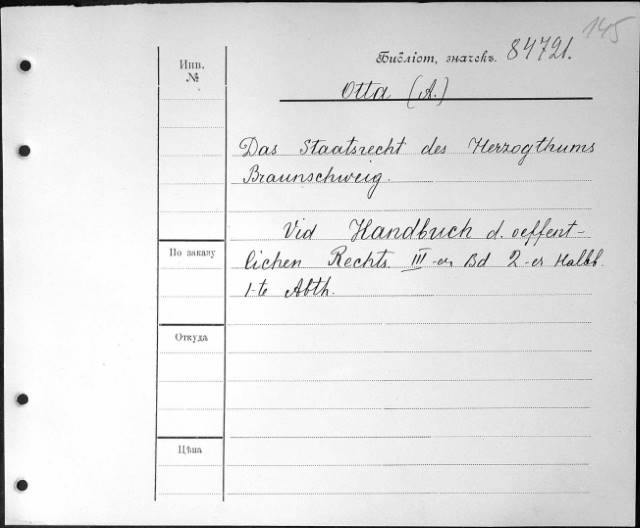 145
Инв.
№
Библіот. значекъ. 84721.
Otta (A.)
Das Staatsrecht des Herzogthums
Braunschweig.
Vid Handbuch d. oeffent-
lichen Rechts III-er Bd 2-er Halbb.
1-te Abth.
По заказу
Откуда
Цѣна